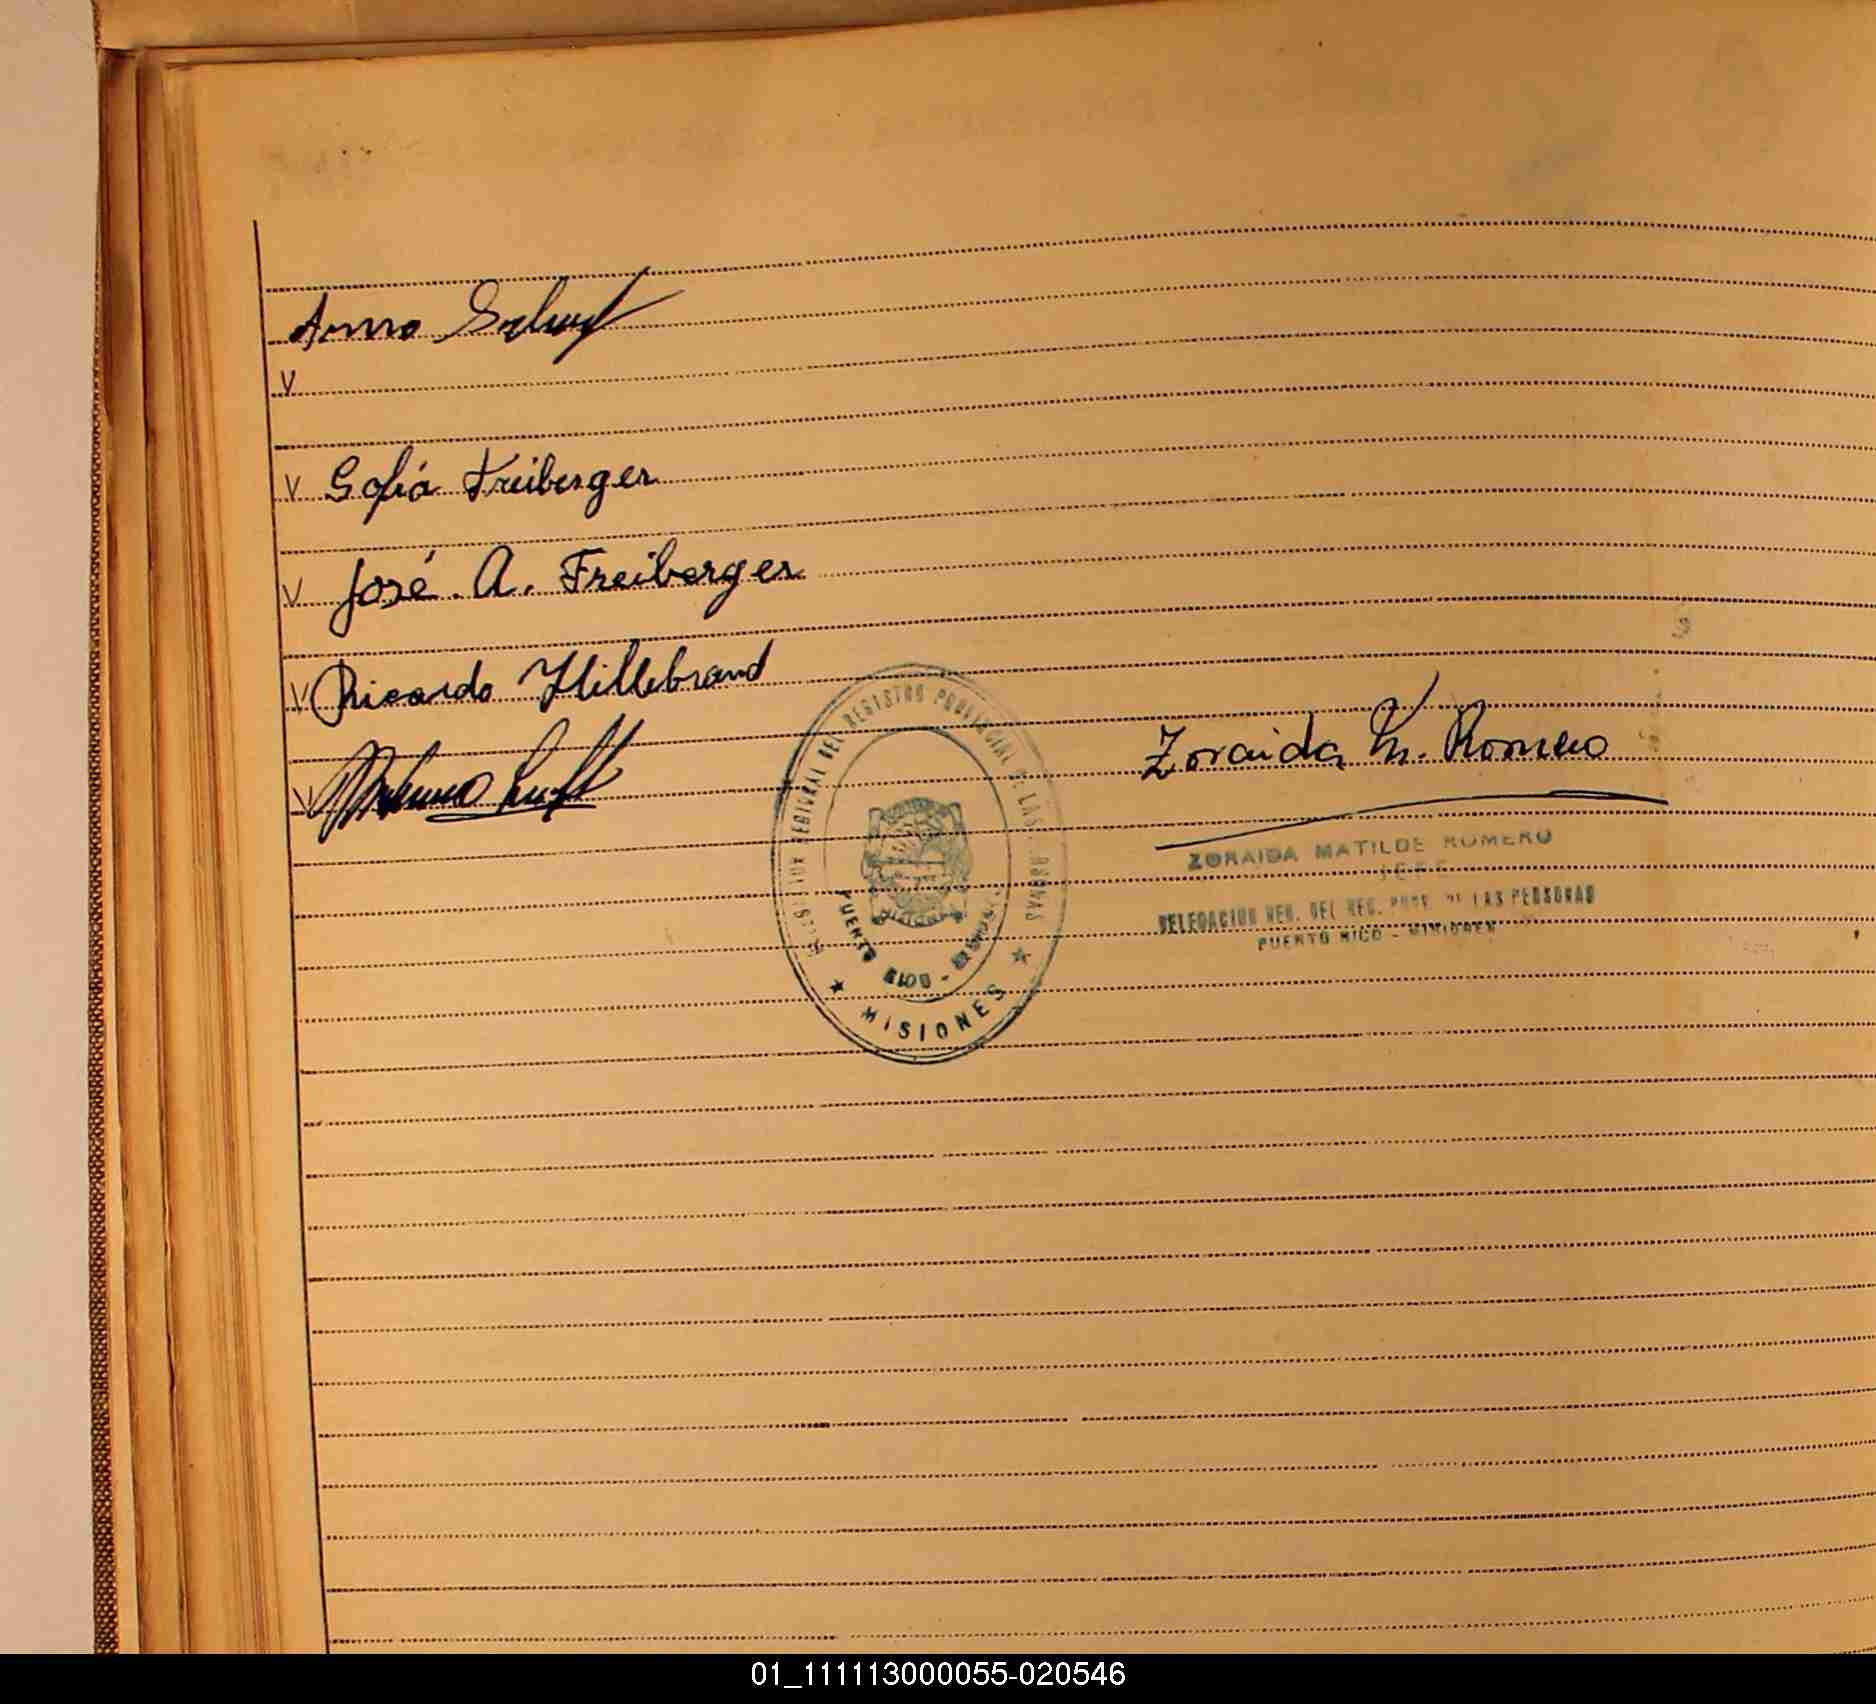 Anno
V
V Sofía Freiberger
V José. A. Freiberger
V Ricardo Hillebrand
V
Zoraida M. Romero
REGIONAL DEL REGISTRO PROVINCIAL DE LAS PERSONAS
PUERTO RICO - MISIONES
★ MISIONES ★
ZORAIDA MATILDE ROMERO
JEFE
DELEGACION REG. DEL REG. PROV. DE LAS PERSONAS
PUERTO RICO - MISIONES
01_111113000055-020546